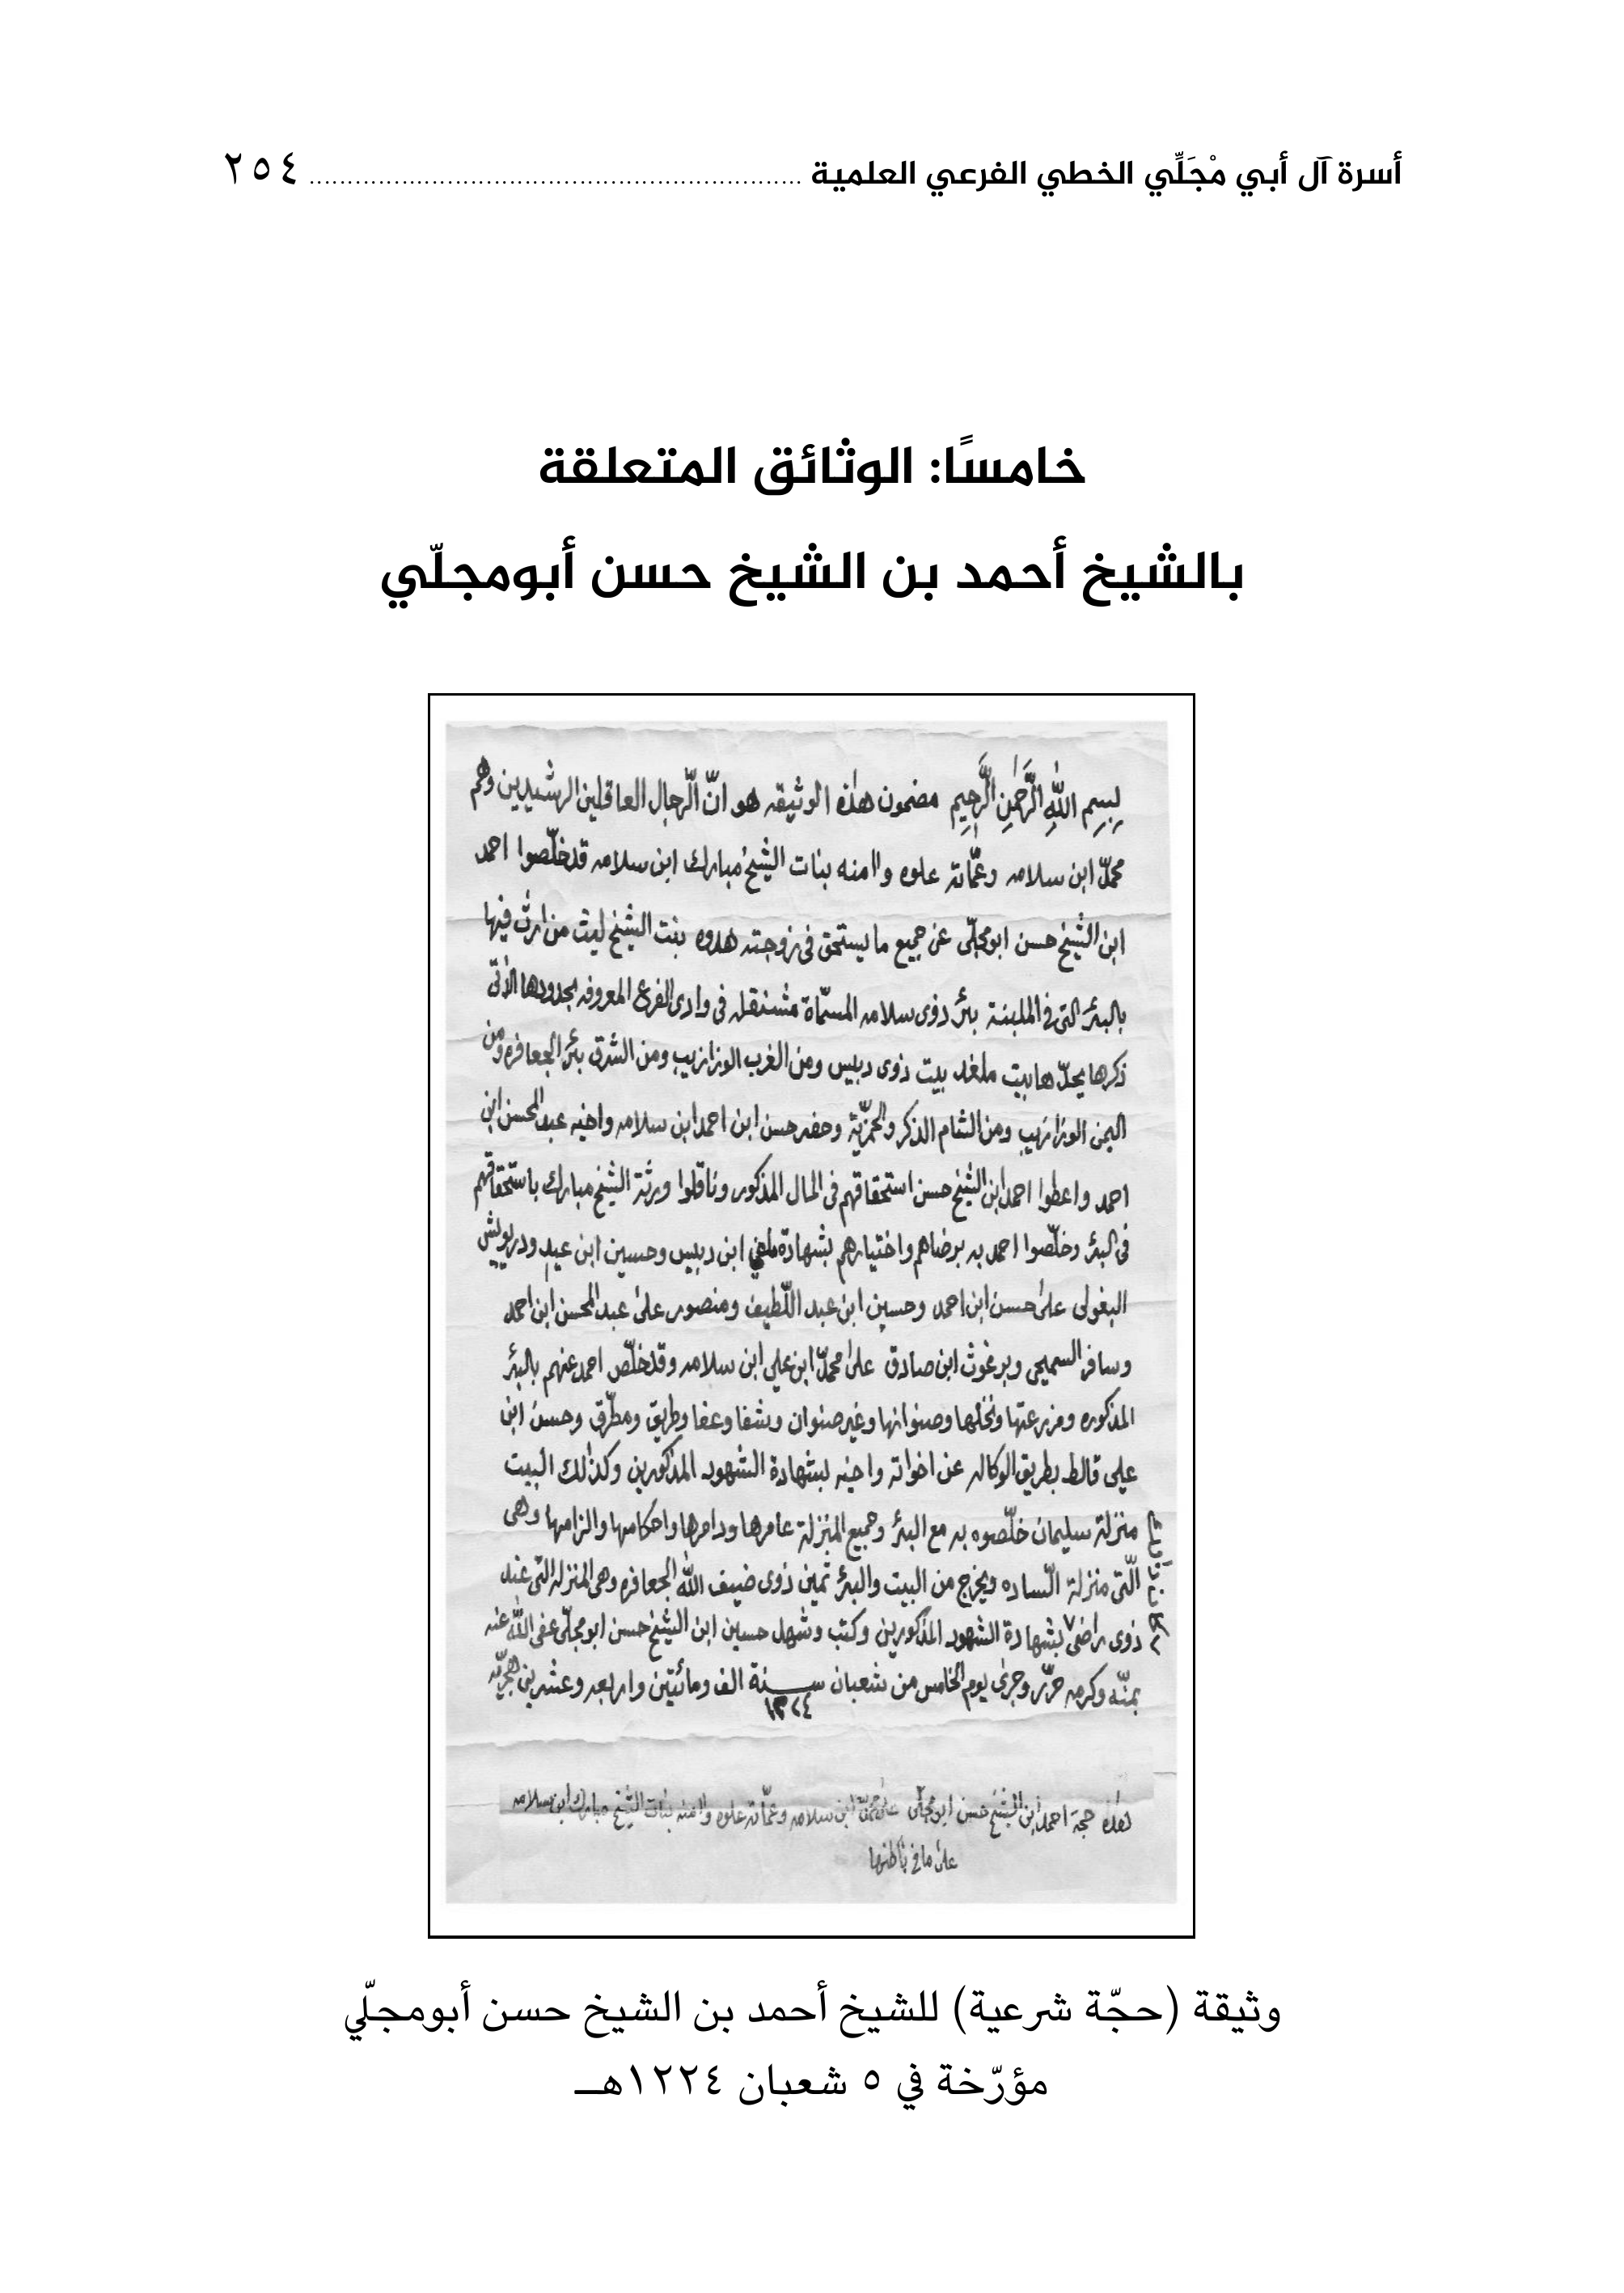 أسرة آل أبي مْجَلِّي الخطي الفرعي العلمية ................................................................. ٢٥٤
خامسًا: الوثائق المتعلقة
بالشيخ أحمد بن الشيخ حسن أبومجلّي
بِسِمِ اللهِ الرَّحْمٰنِ الرَّحِيمِ مضمون هذه الوثيقه هو انّ الرجال العاقلين الرشيدين وهم
محمّد ابن سلامه وعمّاته علوه وامنه بنات الشيخ مبارك ابن سلامه قد خلّصوا احمد
ابن الشيخ حسن ابومجلّى عن جميع ما يستحق في زوجته هدوه بنت الشيخ ليث من ارث فيها
بالبئر التى في الملبنة بئر ذوى سلامه المسمّاة مشنقله فى وادى الفرع المعروفه بحدودها الأتى
ذكرها يحدّها بيت ملغد بيت ذوى دبيس ومن الغرب الوزازيب ومن الشرق بئر الجعافره ومن
اليمن الوزازيب ومن الشام الذكر والحمزيّة وحضر حسن ابن احمد ابن سلامه واخيه عبد المحسن ابن
احمد واعطوا احمد ابن الشيخ حسن استحقاقهم فى المال المذكور وناقلوا ورثة الشيخ مبارك باستحقاقهم
فى البئر وخلّصوا احمد به برضاهم واختيارهم بشهادة ابن دبيس وحسين ابن عيد ودرويش
البغولى على حسن ابن احمد وحسين ابن عبد اللّطيف ومنصور على عبد المحسن ابن احمد
وسافر السميحى وبرغوث ابن صادق على محمّد ابن علي ابن سلامه وقد خلّص احمد عنهم بالبئر
المذكوره ومزرعتها ونخلها وصنوانها وغير صنوان وشفا وعفا وطريق ومطّرق وحسن ابن
علي قالط بطريق الوكاله عن اخواته واخيه بشهادة الشهود المذكورين وكذلك البيت
منزلة سليمان خلّصوه به مع البئر وجميع المنزلة عامرها ودامرها واحكامها والزامها وهى
الّتى منزلة السّاده ويخرج من البيت والبئر ثمين ذوى ضيف الله الجعافره وهى المنزله التى عند
ذوى راضى بشهادة الشهود المذكورين وكتب وشهد حسين ابن الشيخ حسن ابومجلّى عفى الله عنه
بمنّه وكرمه حرّر وجرى يوم الخامس من شعبان سنة الف ومائتين واربعه وعشرين هجريّه
هذه حجة احمد ابن الشيخ حسن ابومجلّى على محمّد ابن سلامه وعمّاته علوه وامنه بنات الشيخ مبارك ابن سلامه
على ما في باطنها
وثيقة (حجّة شرعية) للشيخ أحمد بن الشيخ حسن أبومجلّي
مؤرّخة في ٥ شعبان ١٢٢٤هـ